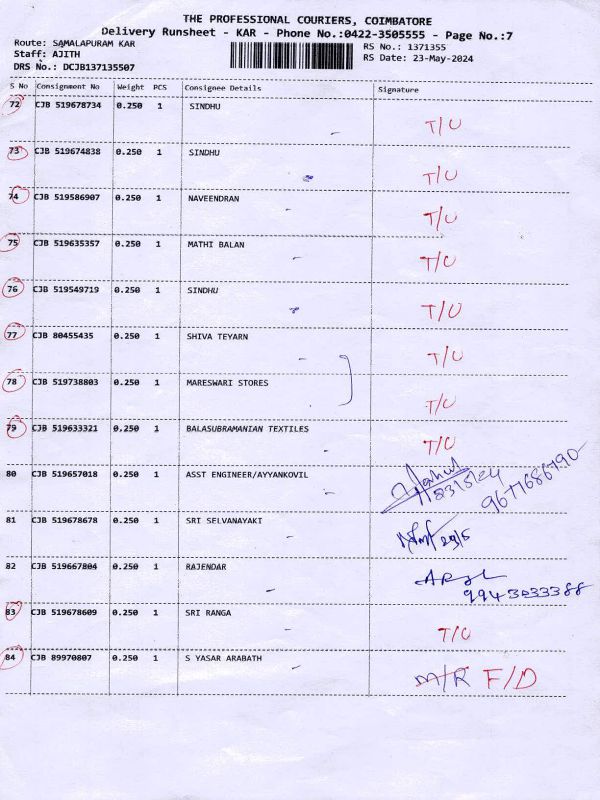 THE PROFESSIONAL COURIERS, COIMBATORE
Delivery Runsheet - KAR - Phone No.:0422-3505555 - Page No.:7
Route: SAMALAPURAM KAR
RS No.: 1371355
Staff: AJITH
RS Date: 23-May-2024
DRS No.: DCJB137135507
S No Consignment No Weight PCS Consignee Details Signature
72 CJB 519678734 0.250 1 SINDHU T/U
73 CJB 519674838 0.250 1 SINDHU T/U
74 CJB 519586907 0.250 1 NAVEENDRAN T/U
75 CJB 519635357 0.250 1 MATHI BALAN T/U
76 CJB 519549719 0.250 1 SINDHU T/U
77 CJB 80455435 0.250 1 SHIVA TEYARN T/U
78 CJB 519738803 0.250 1 MARESWARI STORES T/U
79 CJB 519633321 0.250 1 BALASUBRAMANIAN TEXTILES T/U
80 CJB 519657018 0.250 1 ASST ENGINEER/AYYANKOVIL 9677686790
81 CJB 519678678 0.250 1 SRI SELVANAYAKI 23/5
82 CJB 519667804 0.250 1 RAJENDAR
9943033388
83 CJB 519678609 0.250 1 SRI RANGA T/U
84 CJB 89970807 0.250 1 S YASAR ARABATH M/R F/D